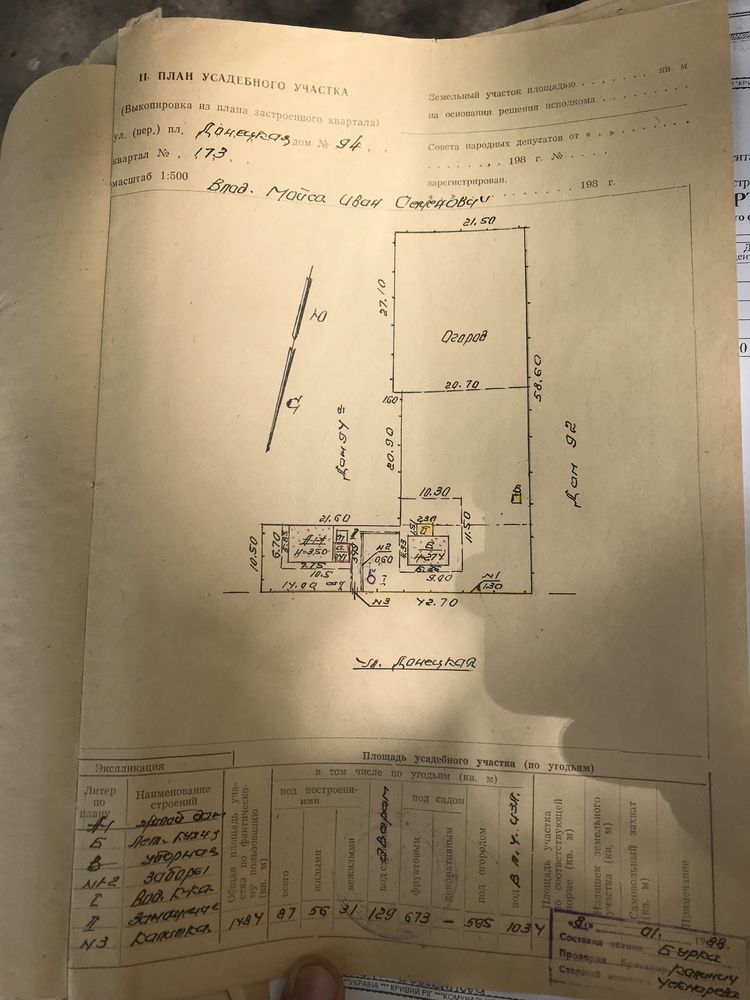 II. ПЛАН УСАДЕБНОГО УЧАСТКА
(Выкопировка из плана застроенного квартала)
ул. (пер.) пл. Донецкая дом № 94
квартал № 173
масштаб 1:500
Земельный участок площадью . . . . . . . кв. м
на основании решения исполкома . . . . . . .
Совета народных депутатов от « . . . . . . .
. . . . . . . 198 г. № . . . . . . .
зарегистрирован.
. . . . . . . 198 г.
Влад. Майса Иван Семенович
21.50
27.10
Ю
Огород
58.60
20.70
1.60
Дом 94а
20.90
Дом 92
10.30
21.60
2.30
11.50
10.50
6.70
Н=3.50
N2
0,60
Б
7.75
10.5
9.00
N1
1.30
14.00
N3
42.70
ул. Донецкая
Экспликация
Площадь усадебного участка (по угодьям)
в том числе по угодьям (кв. м)
Литер по плану
Наименование строений
Общая площадь участка по фактическому пользованию (кв. м)
под постройками
всего
жилыми
нежилыми
под двором
под садом
фруктовым
декоративным
под огородом
Площадь участка по соответствующей норме (кв. м)
Излишек земельного участка (кв. м)
Самовольный захват (кв. м)
Примечание
А-1 жилой дом
Б Лет. кухня
В уборная
N1-2 заборы
I Вод. к-ка
II Замощение
N3 Калитка
1484 87 56 31 129 673 — 595 1034
«8» 01. 1988
Составил техник Бурка
Проверил бригадир
Старший
УКРАЇНА *** КРИВИЙ РІГ ***